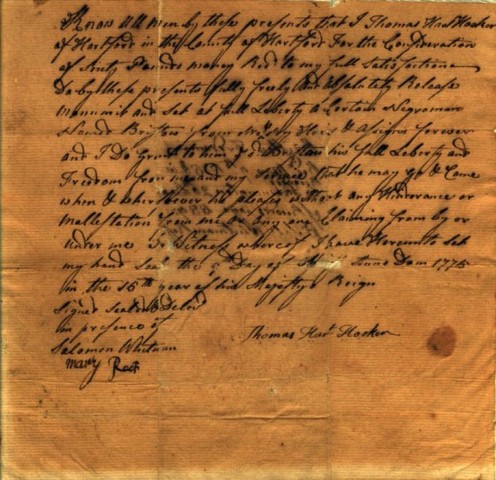 Know all men by these presents that I Thomas Hart Hooker
of Hartford in the County of Hartford For the Consideration
of Sixty Pounds money Recd to my full Satisfaction
Do by these presents fully freely and absolutely Release
Manumit and Set at full Liberty a Certain Negroman
Named Bristow from me my Heirs & Assigns forever
and I Do Grant to him sd Bristow his full Liberty and
Freedom from me and my Service that he may go & Come
when & wherever he pleases without any Hinderance or
Mallestation from me or any one Claiming from by or
under me In Witness whereof I have Hereunto Set
my hand Seal the Day of Anno Dom 1775
in the 15th year of his Majestys Reign
Signd Seald & Delivd
in presence of
Thomas Hart Hooker
Solomon Whitman
Mary Root